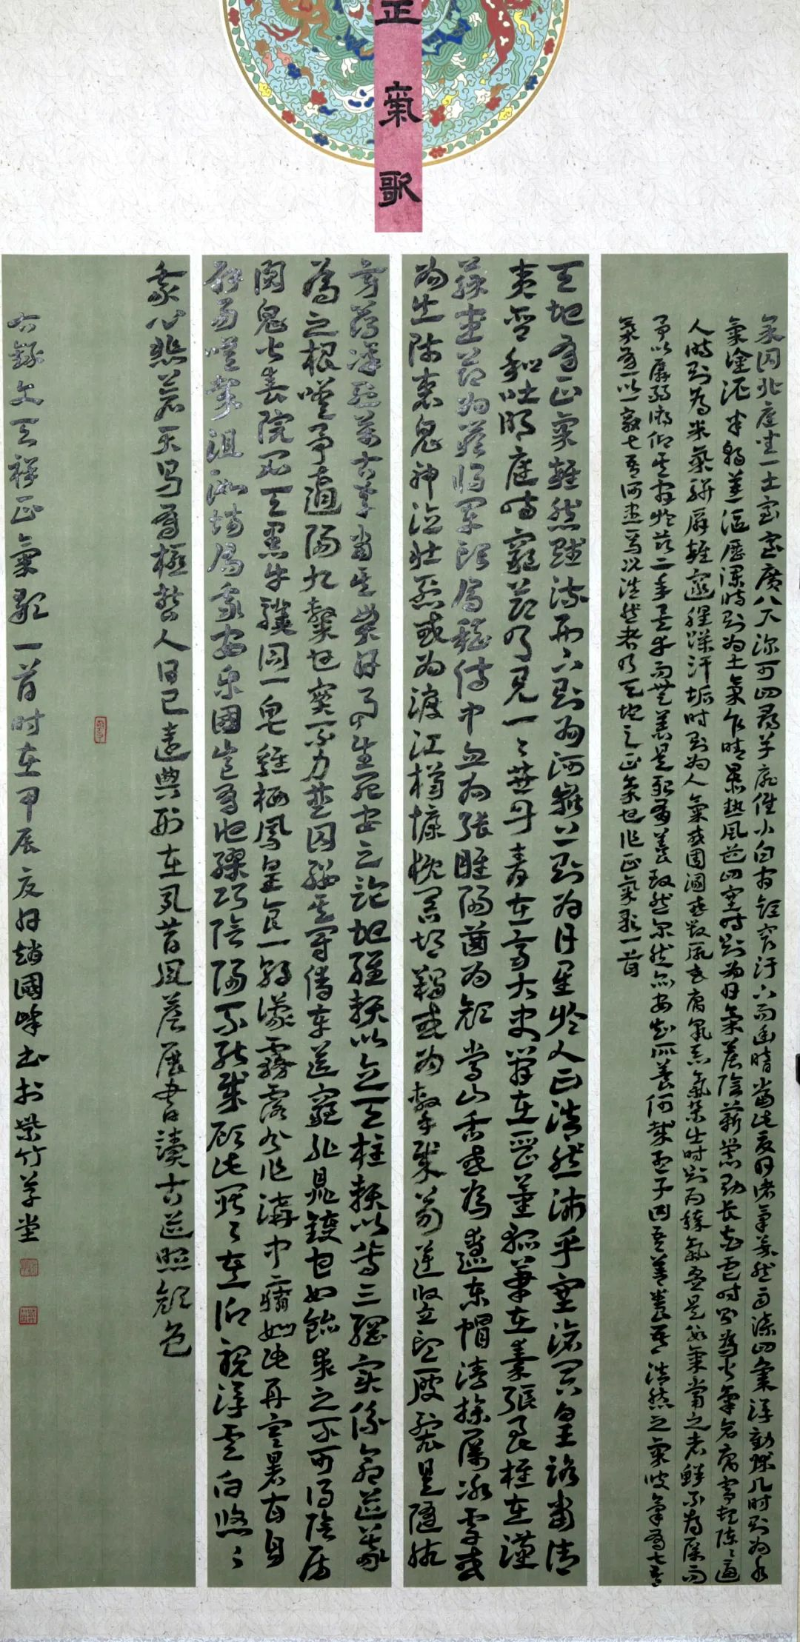 正氣歌
余囚北庭坐一土室室廣八尺深可四尋單扉低小白間短窄汙下而幽暗當此夏日諸氣萃然雨潦四集浮動床几時則為水
氣塗泥半朝蒸漚歷瀾時則為土氣乍晴暴熱風道四塞時則為日氣簷陰薪爨助長炎虐時則為火氣倉腐寄頓陳陳逼
人時則為米氣駢肩雜遝腥臊汗垢時則為人氣或圊溷或毀屍或腐鼠惡氣雜出時則為穢氣疊是數氣當之者鮮不為厲而
予以孱弱俯仰其間於茲二年矣幸而無恙是殆有養致然爾然亦安知所養何哉孟子曰吾善養吾浩然之氣彼氣有七吾
氣有一以一敵七吾何患焉況浩然者乃天地之正氣也作正氣歌一首
天地有正氣雜然賦流形下則為河嶽上則為日星於人曰浩然沛乎塞滄冥皇路當清
夷含和吐明庭時窮節乃見一一垂丹青在齊太史簡在晉董狐筆在秦張良椎在漢
蘇武節為嚴將軍頭為嵇侍中血為張睢陽齒為顏常山舌或為遼東帽清操厲冰雪或
為出師表鬼神泣壯烈或為渡江楫慷慨吞胡羯或為擊賊笏逆豎頭破裂是
旁薄凜冽萬古存當其貫日月生死安足論地維賴以立天柱賴以尊三綱實係命道義
為之根嗟予遘陽九隸也實不力楚囚纓其冠傳車送窮北鼎鑊甘如飴求之不可得陰房
闃鬼火春院閟天黑牛驥同一皂雞棲鳳凰食一朝濛霧露分作溝中瘠如此再寒暑百自
辟易嗟哉沮洳場為我安樂國豈有他繆巧陰陽不能賊顧此耿耿在仰視浮雲白悠悠
我心悲蒼天曷有極哲人日已遠典刑在夙昔風簷展書讀古道照顏色
右錄文天祥正氣歌一首時在甲辰夏日趙國峰書於紫竹草堂